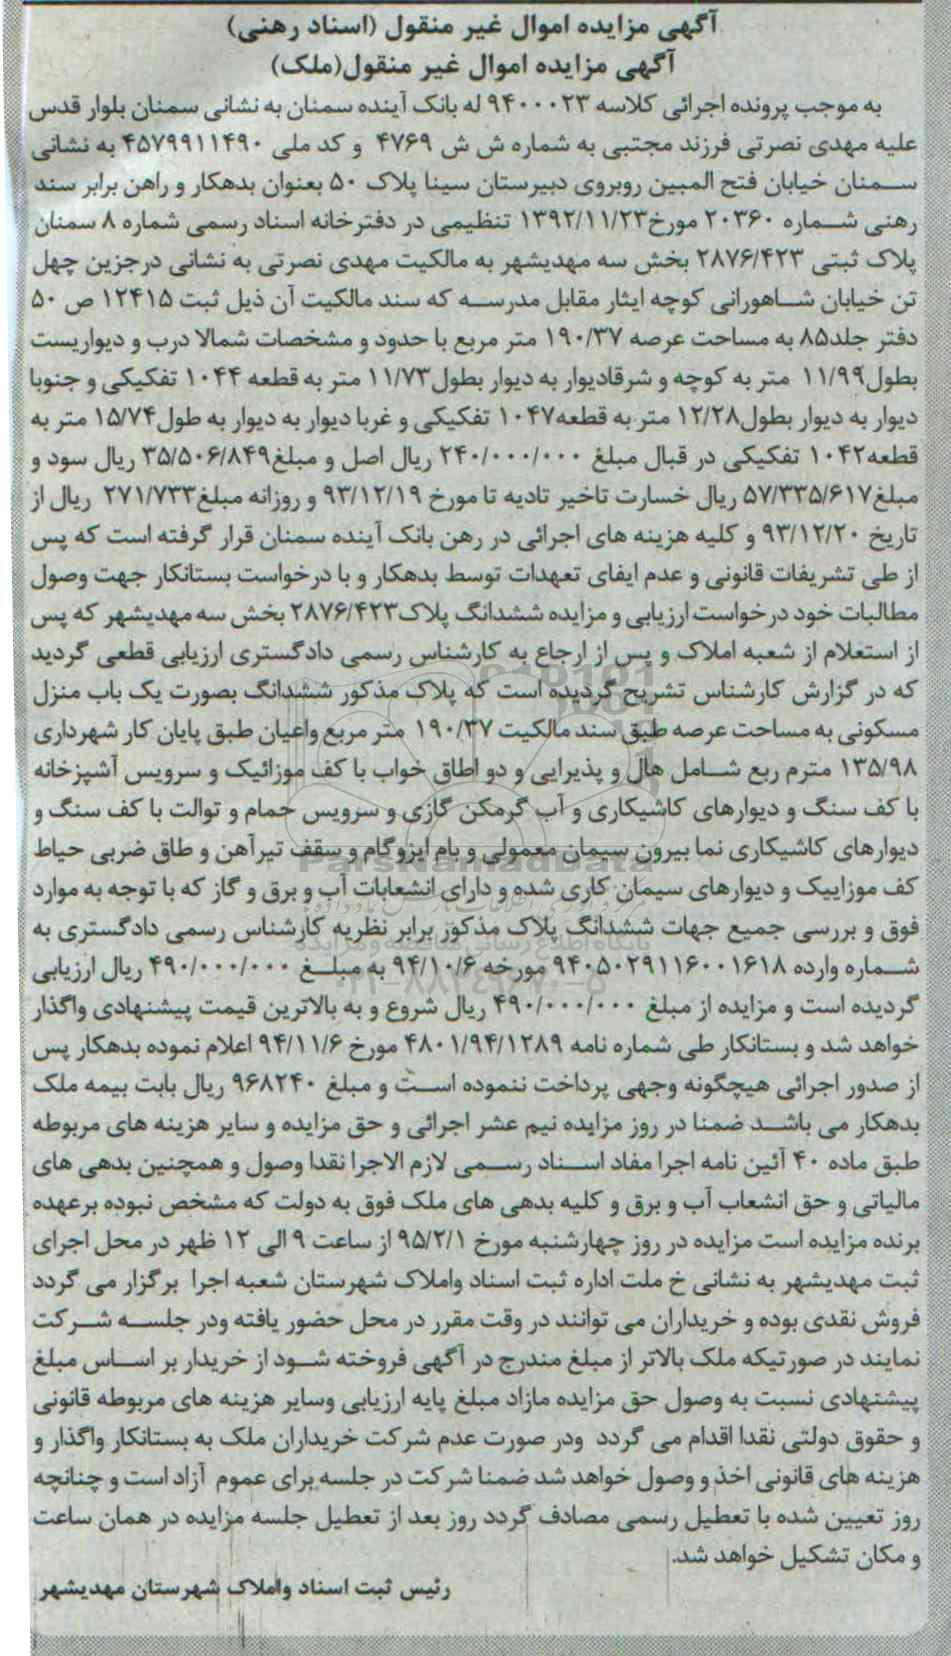 آگهی مزایده اموال غیر منقول (اسناد رهنی)
آگهی مزایده اموال غیر منقول(ملک)
به موجب پرونده اجرائی کلاسه ۹۴۰۰۰۲۳ له بانک آینده سمنان به نشانی سمنان بلوار قدس
علیه مهدی نصرتی فرزند مجتبی به شماره ش ش ۴۷۶۹ و کد ملی ۴۵۷۹۹۱۱۴۹۰ به نشانی
سمنان خیابان فتح المبین روبروی دبیرستان سینا پلاک ۵۰ بعنوان بدهکار و راهن برابر سند
رهنی شماره ۲۰۳۶۰ مورخ۱۳۹۲/۱۱/۲۳ تنظیمی در دفترخانه اسناد رسمی شماره ۸ سمنان
پلاک ثبتی ۲۸۷۶/۴۲۳ بخش سه مهدیشهر به مالکیت مهدی نصرتی به نشانی درجزین چهل
تن خیابان شاهورانی کوچه ایثار مقابل مدرسه که سند مالکیت آن ذیل ثبت ۱۲۴۱۵ ص ۵۰
دفتر جلد۸۵ به مساحت عرصه ۱۹۰/۳۷ متر مربع با حدود و مشخصات شمالا درب و دیواریست
بطول۱۱/۹۹ متر به کوچه و شرقادیوار به دیوار بطول۱۱/۷۳ متر به قطعه ۱۰۴۴ تفکیکی و جنوبا
دیوار به دیوار بطول۱۲/۲۸ متر به قطعه۱۰۴۷ تفکیکی و غربا دیوار به دیوار به طول۱۵/۷۴ متر به
قطعه۱۰۴۲ تفکیکی در قبال مبلغ ۲۴۰/۰۰۰/۰۰۰ ریال اصل و مبلغ۳۵/۵۰۶/۸۴۹ ریال سود و
مبلغ۵۷/۳۳۵/۶۱۷ ریال خسارت تاخیر تادیه تا مورخ ۹۳/۱۲/۱۹ و روزانه مبلغ۲۷۱/۷۳۳ ریال از
تاریخ ۹۳/۱۲/۲۰ و کلیه هزینه های اجرائی در رهن بانک آینده سمنان قرار گرفته است که پس
از طی تشریفات قانونی و عدم ایفای تعهدات توسط بدهکار و با درخواست بستانکار جهت وصول
مطالبات خود درخواست ارزیابی و مزایده ششدانگ پلاک۲۸۷۶/۴۲۳ بخش سه مهدیشهر که پس
از استعلام از شعبه املاک و پس از ارجاع به کارشناس رسمی دادگستری ارزیابی قطعی گردید
که در گزارش کارشناس تشریح گردیده است که پلاک مذکور ششدانگ بصورت یک باب منزل
مسکونی به مساحت عرصه طبق سند مالکیت ۱۹۰/۳۷ متر مربع واعیان طبق پایان کار شهرداری
۱۳۵/۹۸ مترم ربع شامل هال و پذیرایی و دو اطاق خواب با کف موزائیک و سرویس آشپزخانه
با کف سنگ و دیوارهای کاشیکاری و آب گرمکن گازی و سرویس حمام و توالت با کف سنگ و
دیوارهای کاشیکاری نما بیرون سیمان معمولی و بام ایزوگام و سقف تیرآهن و طاق ضربی حیاط
کف موزاییک و دیوارهای سیمان کاری شده و دارای انشعابات آب و برق و گاز که با توجه به موارد
فوق و بررسی جمیع جهات ششدانگ پلاک مذکور برابر نظریه کارشناس رسمی دادگستری به
شماره وارده ۹۴۰۵۰۲۹۱۱۶۰۰۱۶۱۸ مورخه ۹۴/۱۰/۶ به مبلغ ۴۹۰/۰۰۰/۰۰۰ ریال ارزیابی
گردیده است و مزایده از مبلغ ۴۹۰/۰۰۰/۰۰۰ ریال شروع و به بالاترین قیمت پیشنهادی واگذار
خواهد شد و بستانکار طی شماره نامه ۴۸۰۱/۹۴/۱۲۸۹ مورخ ۹۴/۱۱/۶ اعلام نموده بدهکار پس
از صدور اجرائی هیچگونه وجهی پرداخت ننموده است و مبلغ ۹۶۸۲۴۰ ریال بابت بیمه ملک
بدهکار می باشد ضمنا در روز مزایده نیم عشر اجرائی و حق مزایده و سایر هزینه های مربوطه
طبق ماده ۴۰ آئین نامه اجرا مفاد اسناد رسمی لازم الاجرا نقدا وصول و همچنین بدهی های
مالیاتی و حق انشعاب آب و برق و کلیه بدهی های ملک فوق به دولت که مشخص نبوده برعهده
برنده مزایده است مزایده در روز چهارشنبه مورخ ۹۵/۲/۱ از ساعت ۹ الی ۱۲ ظهر در محل اجرای
ثبت مهدیشهر به نشانی خ ملت اداره ثبت اسناد واملاک شهرستان شعبه اجرا برگزار می گردد
فروش نقدی بوده و خریداران می توانند در وقت مقرر در محل حضور یافته ودر جلسه شرکت
نمایند در صورتیکه ملک بالاتر از مبلغ مندرج در آگهی فروخته شود از خریدار بر اساس مبلغ
پیشتهادی نسبت به وصول حق مزایده مازاد مبلغ پایه ارزیابی وسایر هزینه های مربوطه قانونی
و حقوق دولتی نقدا اقدام می گردد ودر صورت عدم شرکت خریداران ملک به بستانکار واگذار و
هزینه های قانونی اخذ و وصول خواهد شد ضمنا شرکت در جلسه برای عموم آزاد است و چنانچه
روز تعیین شده با تعطیل رسمی مصادف گردد روز بعد از تعطیل جلسه مزایده در همان ساعت
و مکان تشکیل خواهد شد.
رئیس ثبت اسناد واملاک شهرستان مهدیشهر
ParsNamadData
پایگاه اطلاع رسانی مناقصه و مزایده
۰۲۱-۸۸۳۴۹۶۷۰-۵